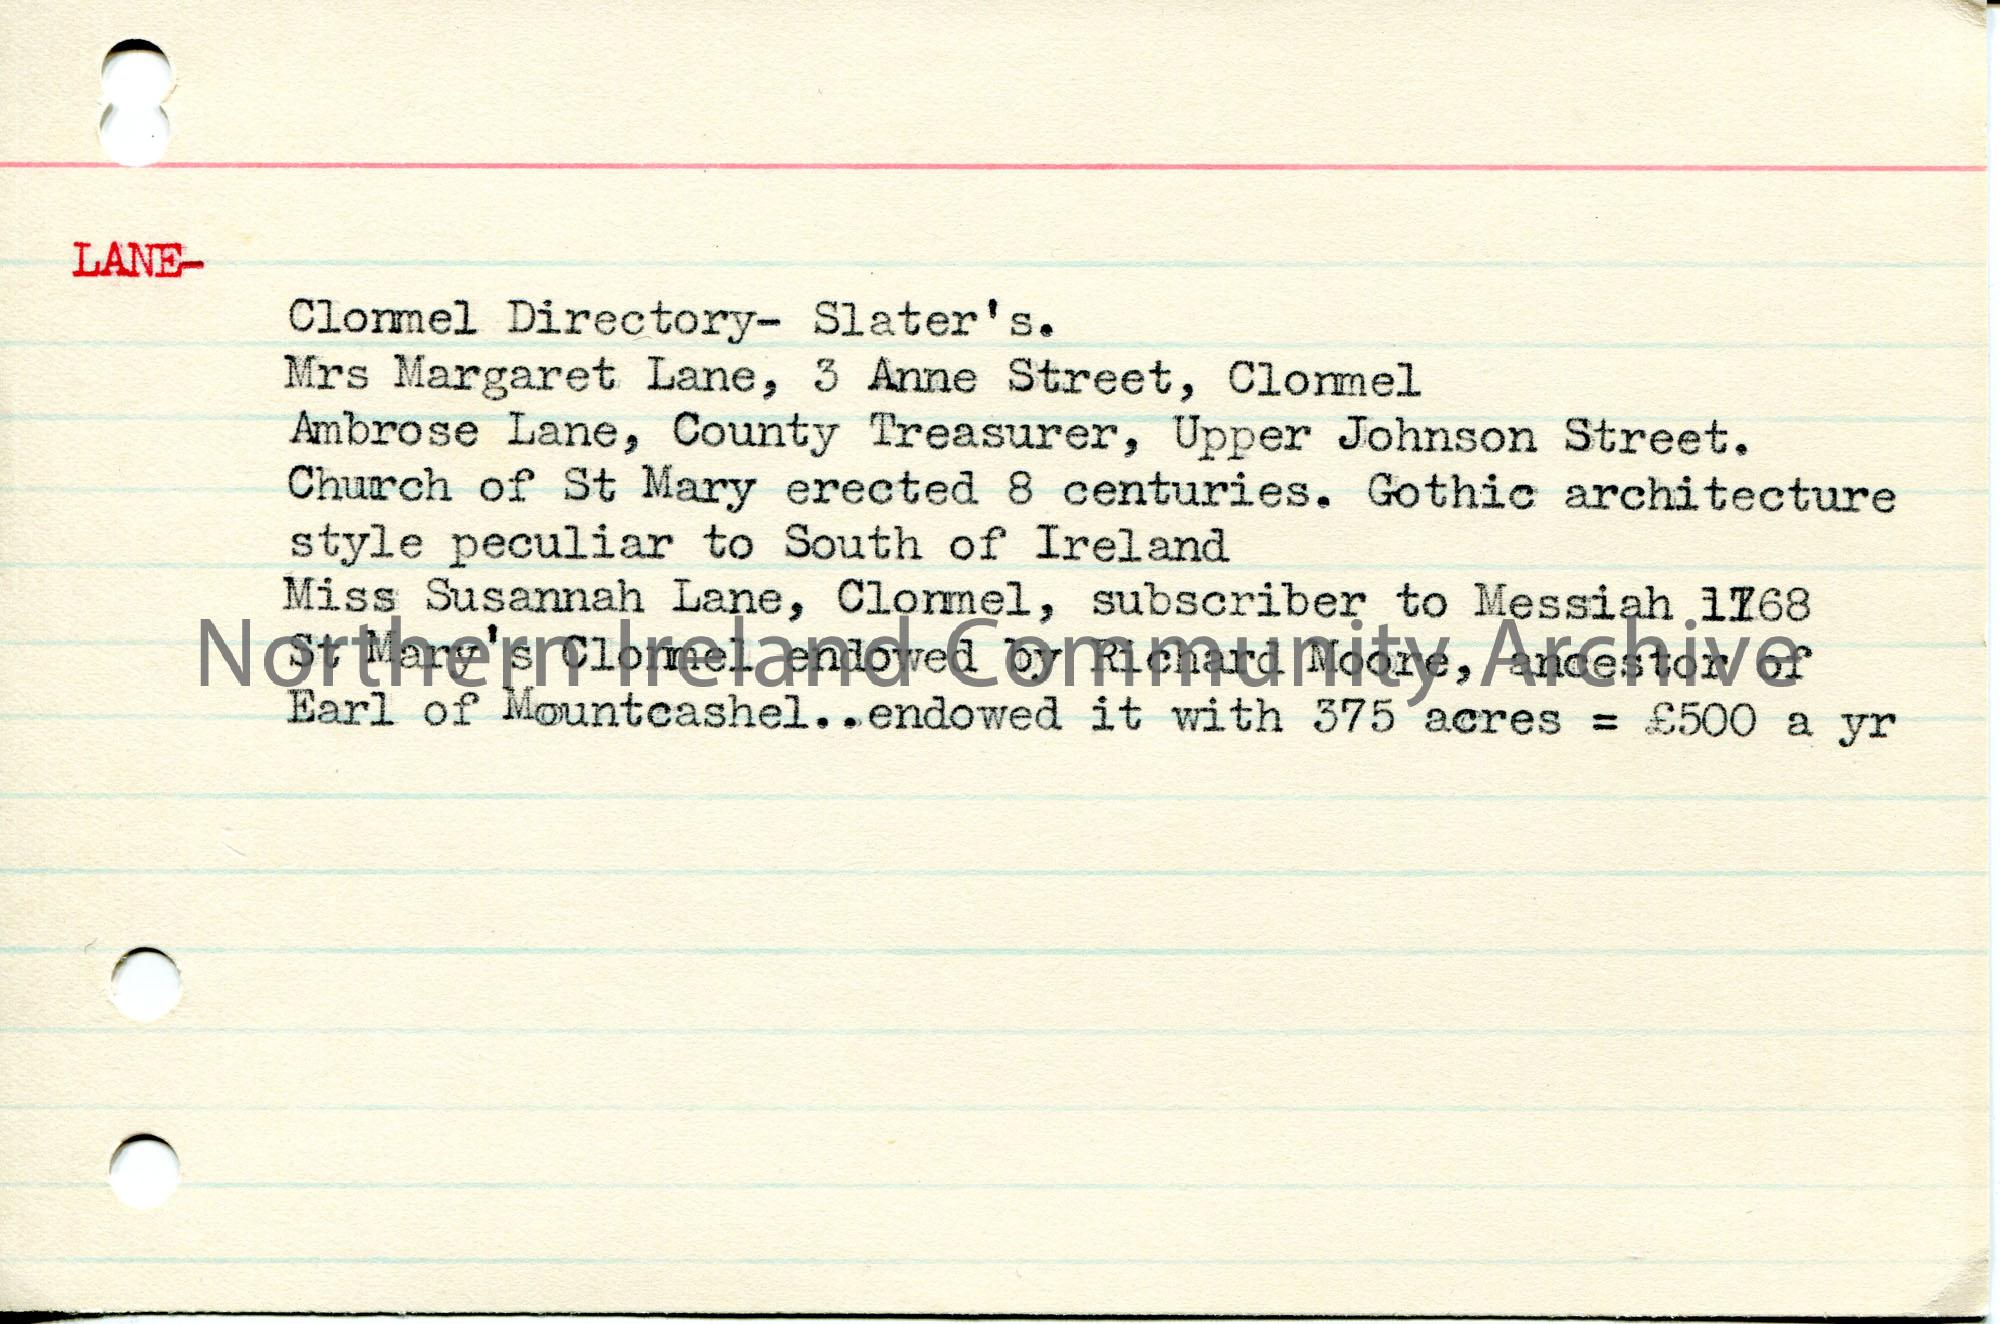 LANE-
Clonmel Directory- Slater's.
Mrs Margaret Lane, 3 Anne Street, Clonmel
Ambrose Lane, County Treasurer, Upper Johnson Street.
Church of St Mary erected 8 centuries. Gothic architecture
style peculiar to South of Ireland
Miss Susannah Lane, Clonmel, subscriber to Messiah 1768
St Mary's Clonmel endowed by Richard Moore, ancestor of
Northern Ireland Community Archive
Earl of Mountcashel..endowed it with 375 acres = £500 a yr